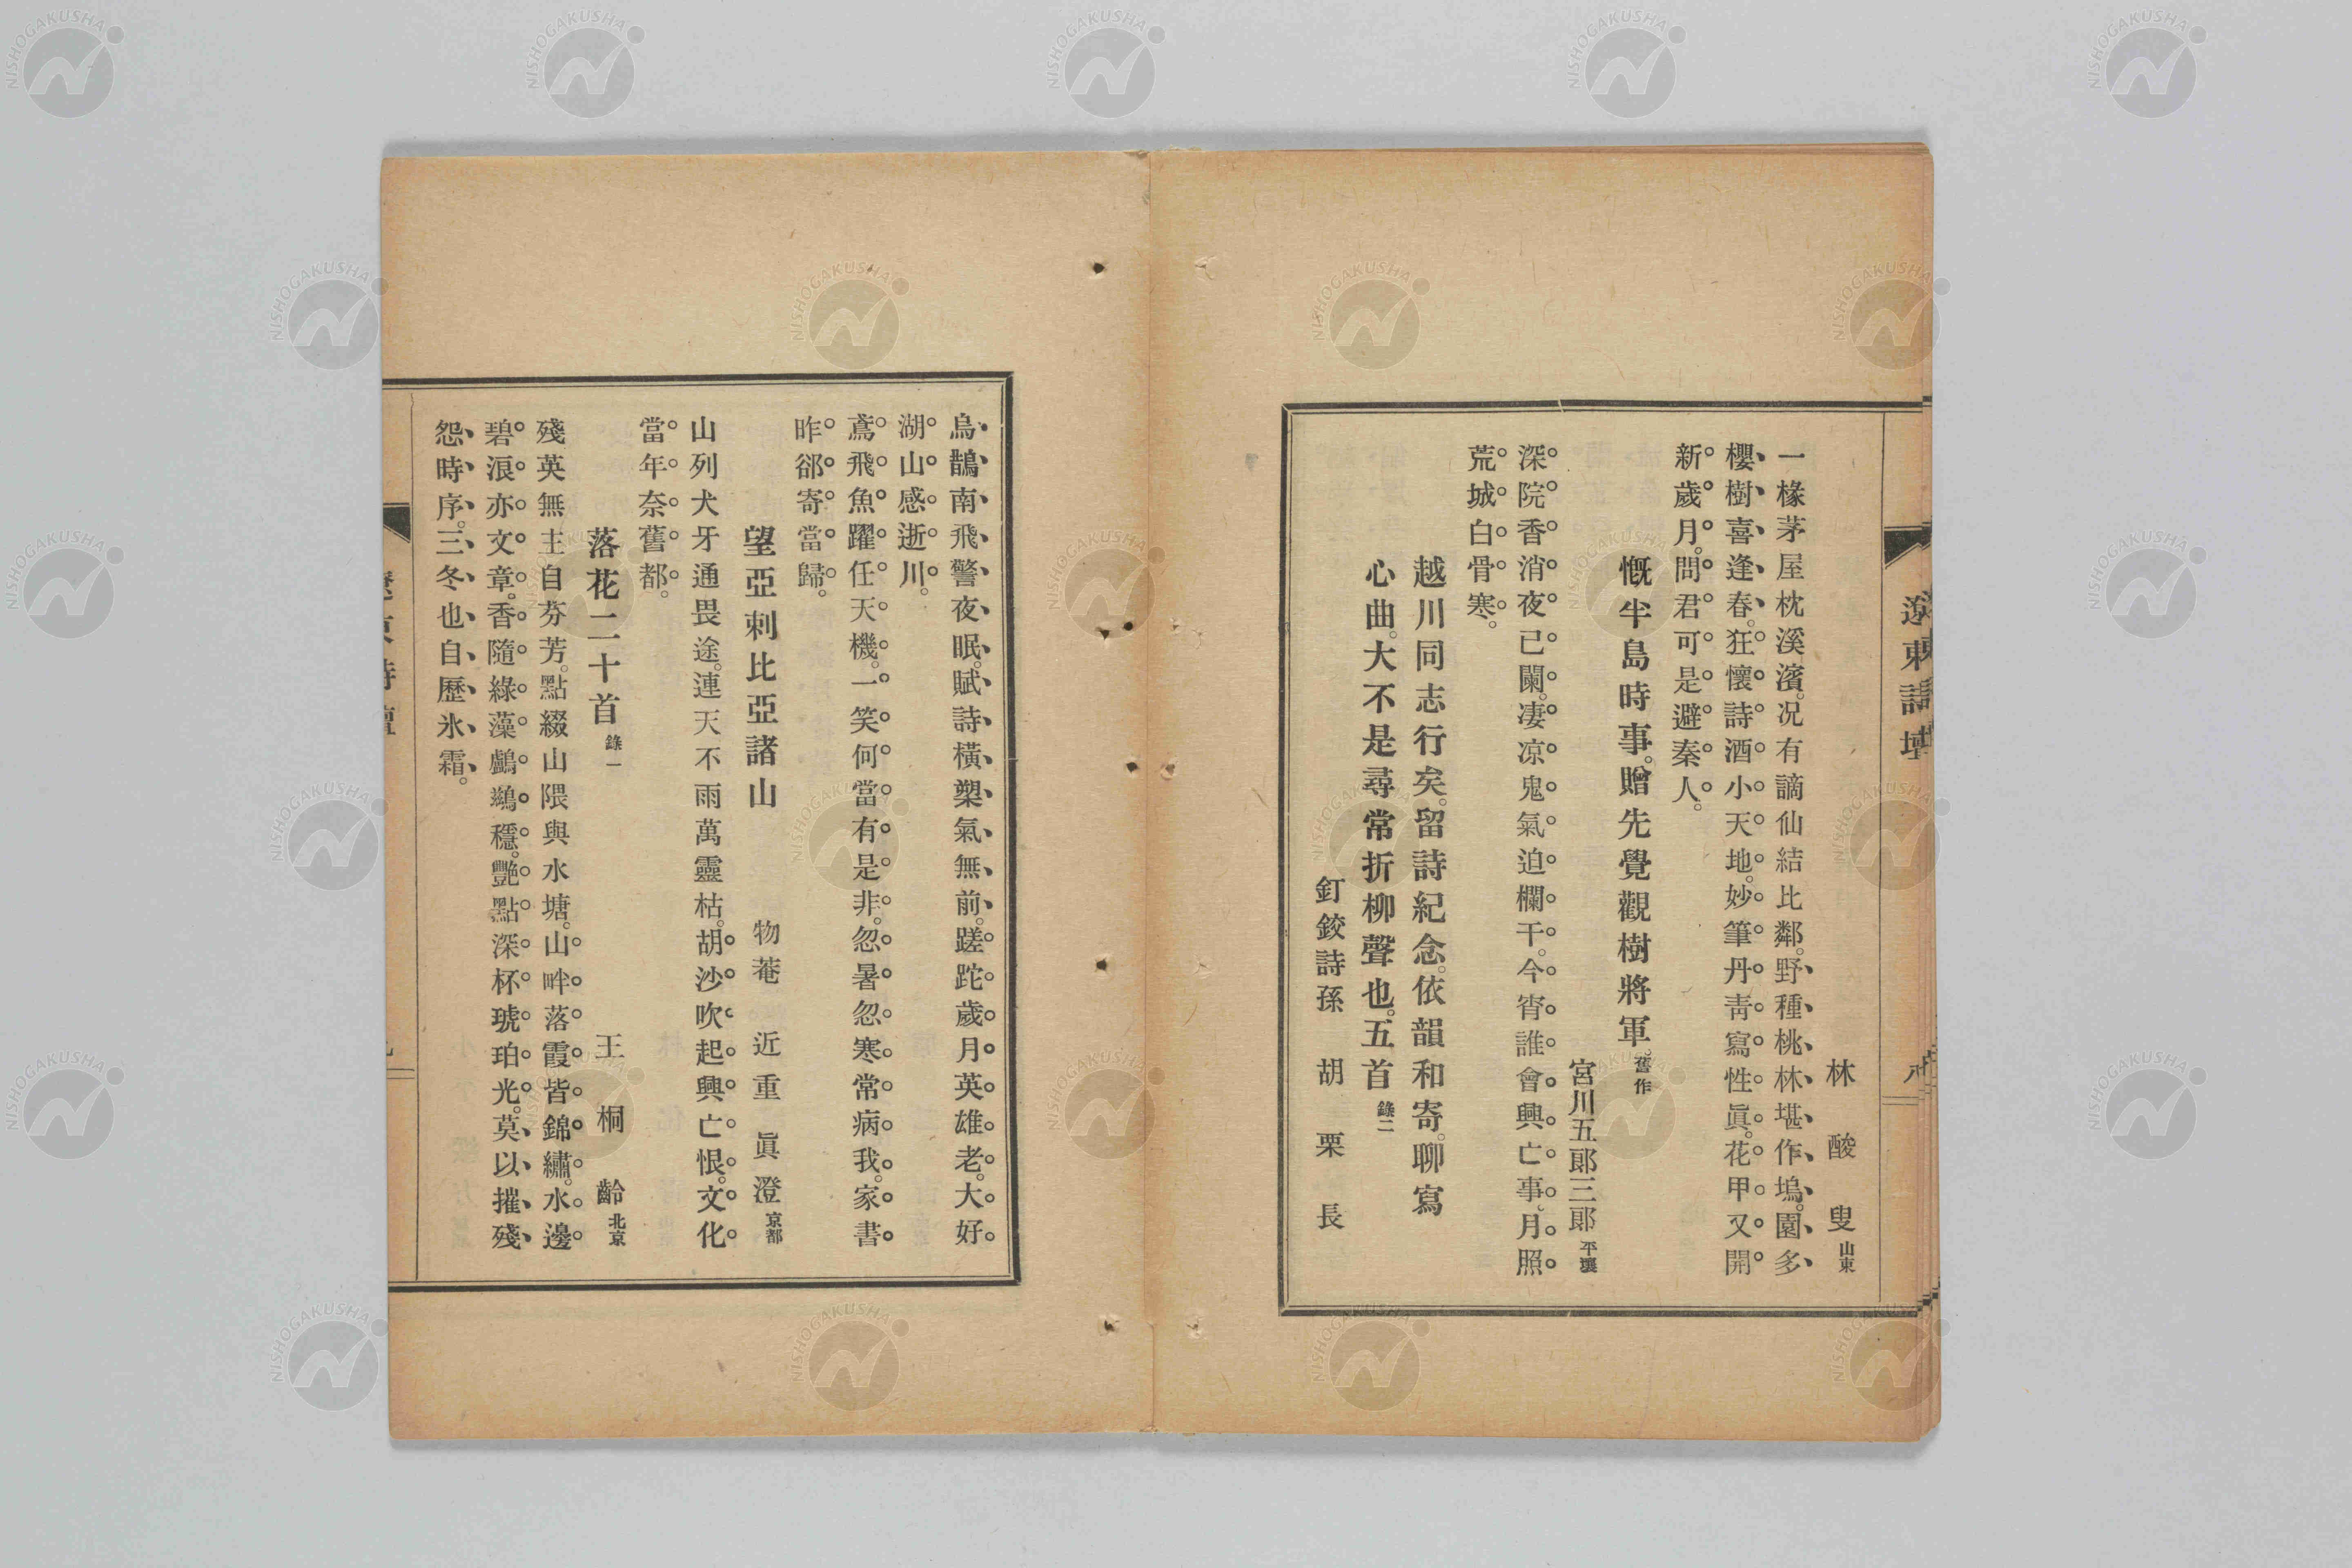 遼東詩壇
八
林酸叟山東
一椽茅屋枕溪濱。况有謫仙結比鄰。野種桃林堪作塢。園多
櫻樹喜逢春。狂懷詩酒小天地。妙筆丹靑寫性眞。花甲又開
新歲月。問君可是避秦人。
慨半島時事。贈先覺觀樹將軍。舊作
宮川五郞三郞平壤
深院香消夜已闌。凄凉鬼氣迫欄干。今宵誰會興亡事。月照
荒城白骨寒。
越川同志行矣。留詩紀念。依韻和寄。聊寫
心曲。大不是尋常折柳聲也。五首錄二
釘鉸詩孫 胡栗長
烏鵲南飛警夜眠。賦詩橫槊氣無前。蹉跎歲月英雄老。大好
湖山感逝川。
鳶飛魚躍任天機。一笑何當有是非。忽暑忽寒常病我。家書
昨郤寄當歸。
望亞剌比亞諸山
物菴 近重眞澄京都
山列犬牙通畏途。連天不雨萬靈枯。胡沙吹起興亡恨。文化
當年奈舊都。
落花二十首錄一
王桐齡北京
殘英無主自芬芳。點綴山隈與水塘。山畔落霞皆錦繡。水邊
碧浪亦文章。香隨綠藻鸕鷀穩。艷點深杯琥珀光。莫以摧殘
怨時序。三冬也自歷氷霜。